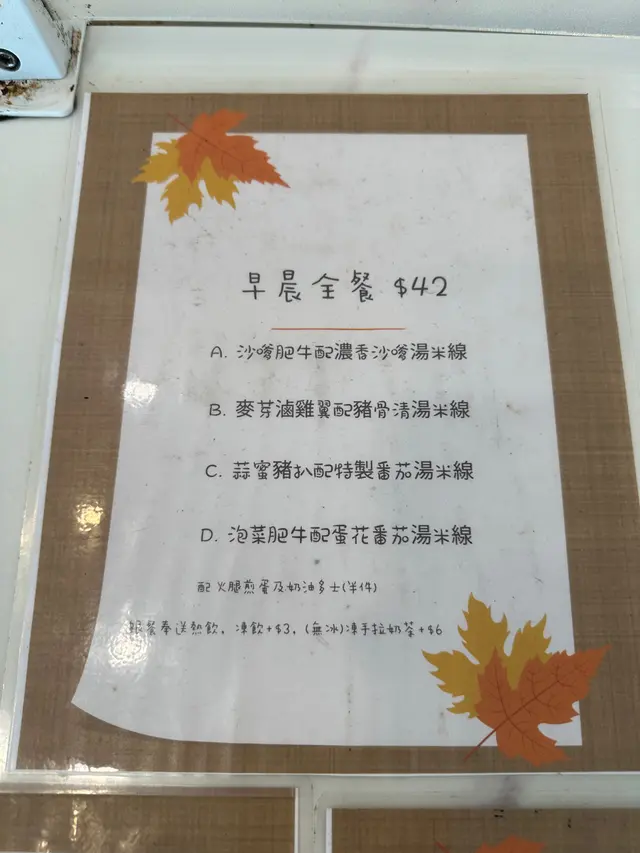 早晨全餐 $42
A. 沙嗲肥牛配濃香沙嗲湯米線
B. 麥芽滷雞翼配豬骨清湯米線
C. 蒜蜜豬扒配特製番茄湯米線
D. 泡菜肥牛配蛋花番茄湯米線
配火腿煎蛋及奶油多士(半件)
跟餐奉送熱飲，凍飲+$3，(無冰)凍手拉奶茶+$6